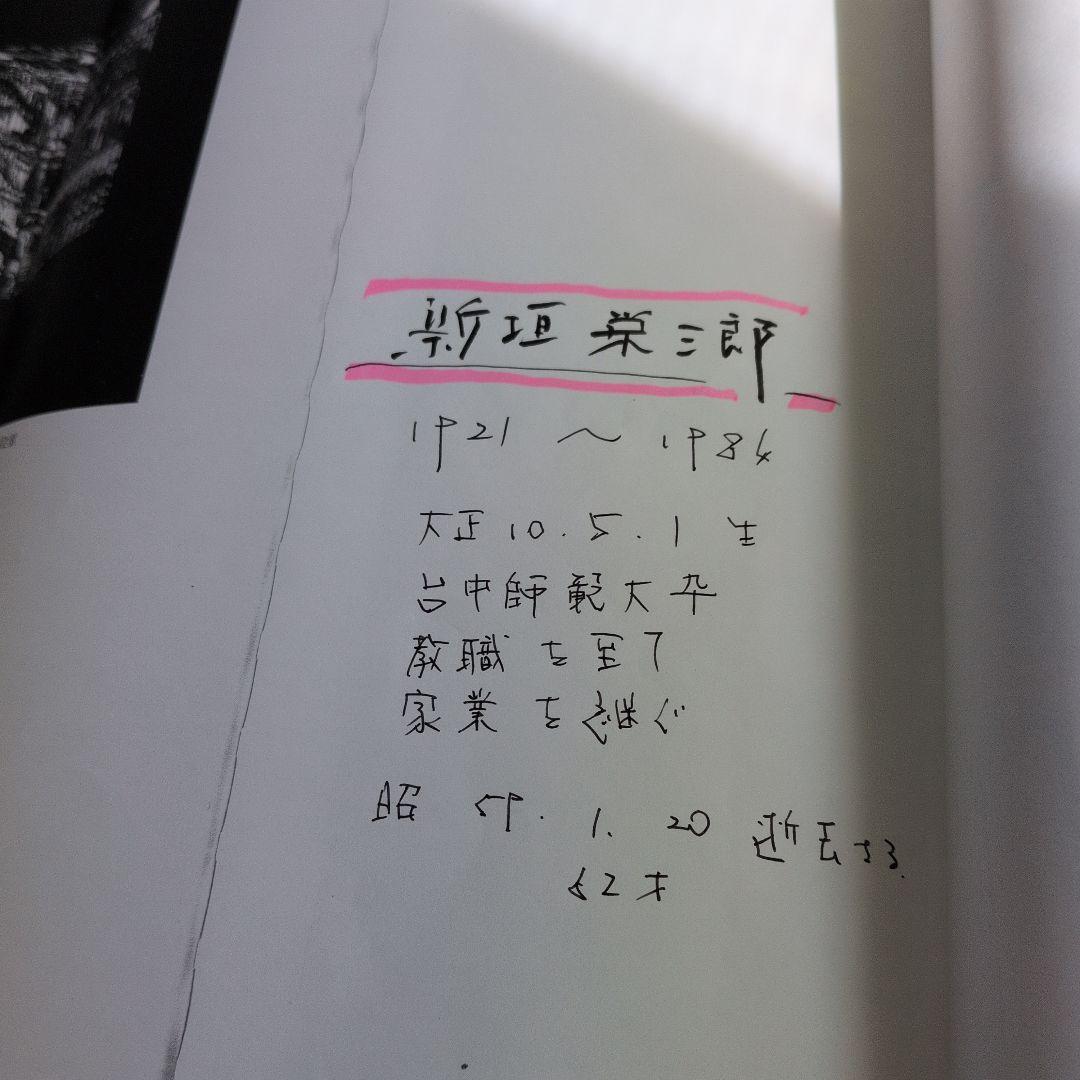 新垣栄三郎
1921 〜 1984
大正10.5.1 生
台中師範大卆
教職を至て
家業を継ぐ
昭 59. 1. 20 逝去する.
62才